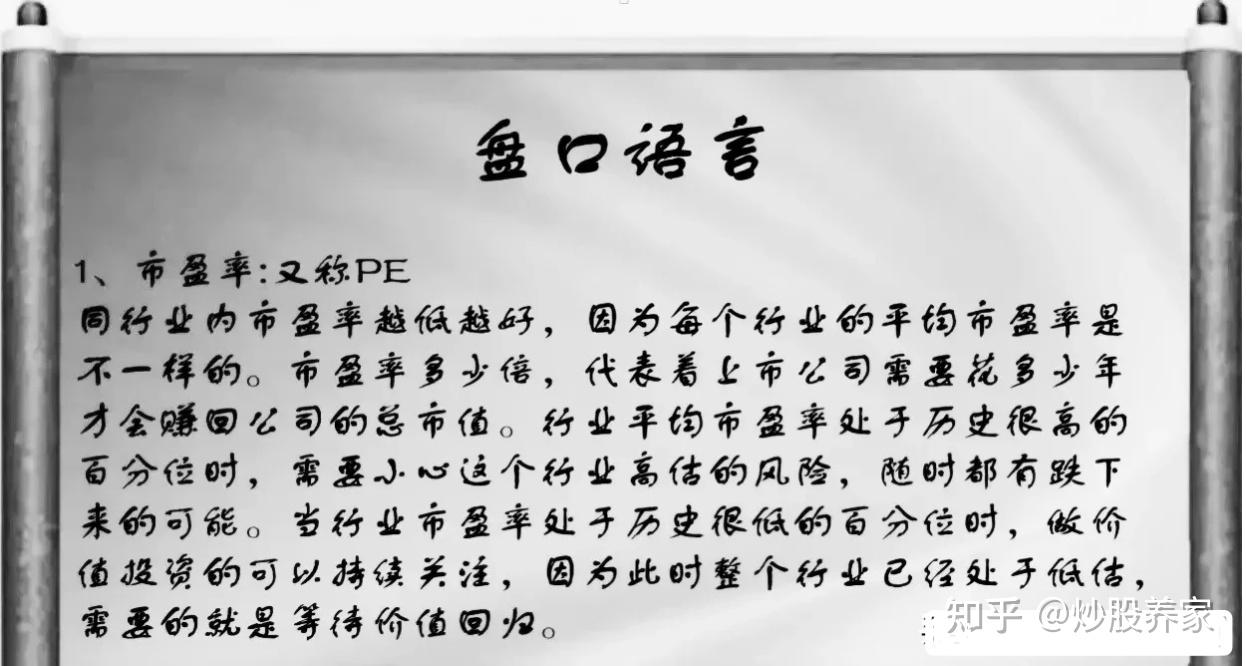 盘口语言
1、市盈率:又称PE
同行业内市盈率越低越好，因为每个行业的平均市盈率是
不一样的。市盈率多少倍，代表着上市公司需要花多少年
才会赚回公司的总市值。行业平均市盈率处于历史很高的
百分位时，需要小心这个行业高估的风险，随时都有跌下
来的可能。当行业市盈率处于历史很低的百分位时，做价
值投资的可以持续关注，因为此时整个行业已经处于低估，
需要的就是等待价值回归。
知乎 @炒股养家